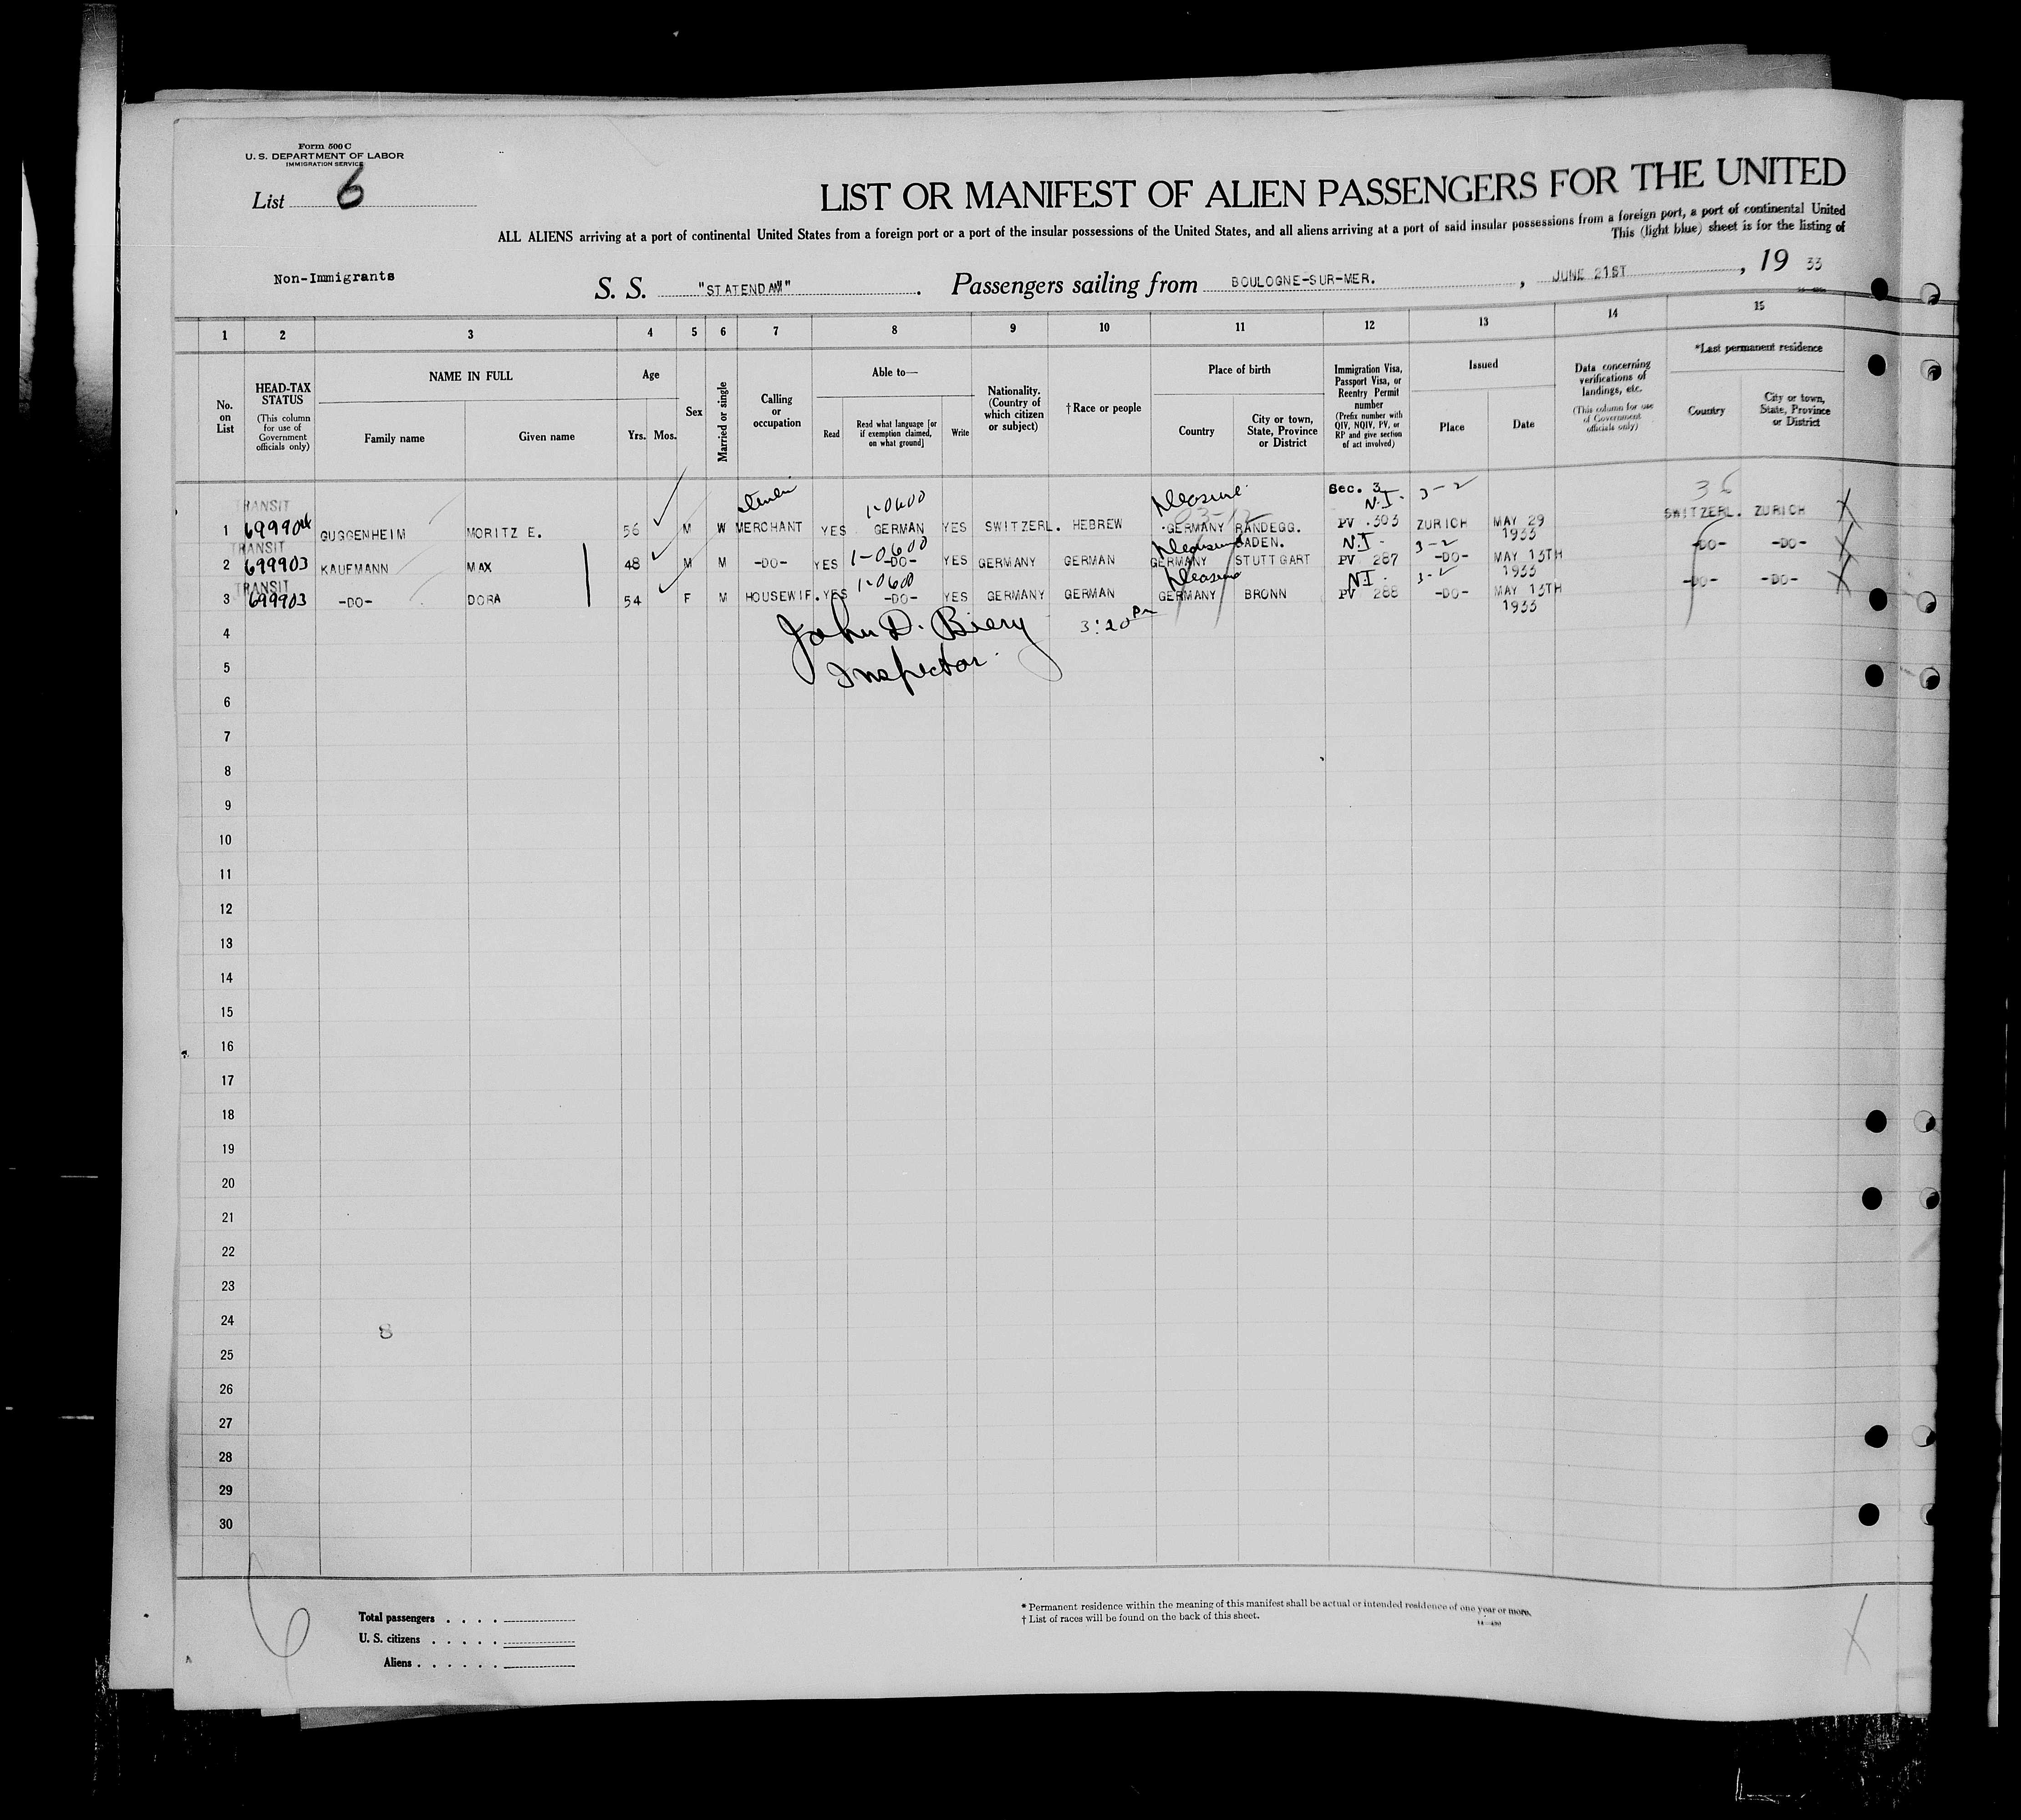 Form 500 C
U. S. DEPARTMENT OF LABOR
IMMIGRATION SERVICE
List 6
LIST OR MANIFEST OF ALIEN PASSENGERS FOR THE UNITED
ALL ALIENS arriving at a port of continental United States from a foreign port or a port of the insular possessions of the United States, and all aliens arriving at a port of said insular possessions from a foreign port, a port of continental United
This (light blue) sheet is for the listing of
Non-Immigrants
S. S. "STATENDAM". Passengers sailing from BOULOGNE-SUR-MER., JUNE 21ST, 19 33
1 2 3 4 5 6 7 8 9 10 11 12 13 14 15
No. on List
HEAD-TAX STATUS (This column for use of Government officials only)
NAME IN FULL
Family name Given name
Age
Yrs. Mos.
Sex
Married or single
Calling or occupation
Able to—
Read
Read what language [or if exemption claimed, on what ground]
Write
Nationality. (Country of which citizen or subject)
†Race or people
Place of birth
Country
City or town, State, Province or District
Immigration Visa, Passport Visa, or Reentry Permit number (Prefix number with QIV, NQIV, PV, or RP and give section of act involved)
Issued
Place Date
Data concerning verifications of landings, etc. (This column for use of Government officials only)
*Last permanent residence
Country
City or town, State, Province or District
TRANSIT 1-0600 Pleasure Sec. 3 N.I. 3-2 36
1 699904 GUGGENHEIM MORITZ E. 56 M W MERCHANT YES GERMAN YES SWITZERL. HEBREW GERMANY RANDEGG. BADEN. PV 303 ZURICH MAY 29 1933 SWITZERL. ZURICH
TRANSIT 1-0600 Pleasure N.I. 3-2
2 699903 KAUFMANN MAX 48 M M -DO- YES -DO- YES GERMANY GERMAN GERMANY STUTTGART PV 287 -DO- MAY 13TH 1933 -DO- -DO-
TRANSIT 1-0600 Pleasure N.I. 3-2
3 699903 -DO- DORA 54 F M HOUSEWIF. YES -DO- YES GERMANY GERMAN GERMANY BRONN PV 288 -DO- MAY 13TH 1933 -DO- -DO-
4 John D. Biery 3:20 Pm
5 Inspector.
6
7
8
9
10
11
12
13
14
15
16
17
18
19
20
21
22
23
24
8
25
26
27
28
29
30
Total passengers
U. S. citizens
Aliens
* Permanent residence within the meaning of this manifest shall be actual or intended residence of one year or more.
† List of races will be found on the back of this sheet.